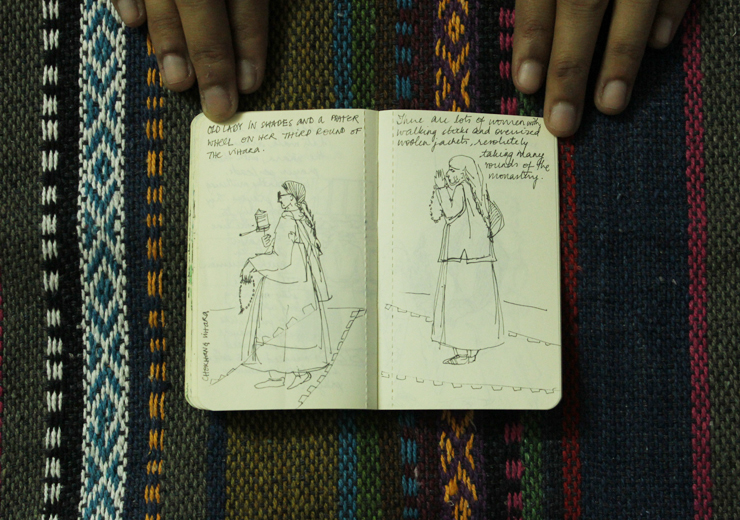 OLD LADY IN SHADES AND A PRAYER
WHEEL ON HER THIRD ROUND OF
THE VIHARA.
CHOKHANG VIHARA
There are lots of women with
walking sticks and oversized
woolen jackets, resolutely
taking many
rounds of the
monastery.